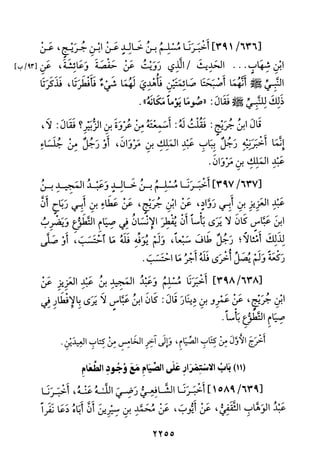 [٣٩١/٦٣٦] أَخْبَرَنَا مُسْلِمُ بنُ خَالِدٍ عَنْ ابْنِ جُرَيْجٍ، عَنْ
ابْنِ شِهَابٍ ... الحَدِيثَ / الَّذِي رَوَيْتُ عَنْ حَفْصَةَ وَعَائِشَةَ، عَنِ [٩٣/ب]
النَّبِيِّ ﷺ أَنَّهُمَا أَصْبَحَتَا صَائِمَتَيْنِ فَأُهْدِيَ لَهُمَا شَيْءٌ، فَأَفْطَرَتَا، فَذَكَرَتَا
ذَلِكَ لِلنَّبِيِّ ﷺ، فَقَالَ: «صُومَا يَوْماً مَكَانَهُ».
قَالَ ابنُ جُرَيْجٍ: فَقُلْتُ لَهُ: أَسَمِعْتَهُ مِنْ عُرْوَةَ بنِ الزُّبَيرِ؟ فَقَالَ: لَا،
إِنَّمَا أَخْبَرَنِيْهِ رَجُلٌ بِبَابِ عَبْدِ المَلِكِ بنِ مَرْوَانَ، أَوْ رَجُلٌ مِنْ جُلَسَاءِ
عَبْدِ المَلِكِ بنِ مَرْوَانَ.
[٣٩٧/٦٣٧] أَخْبَرَنَا مُسْلِمُ بنُ خَالِدٍ وَعَبْدُ المَجِيدِ بنُ
عَبْدِ العَزِيزِ بنِ أَبِي رَوَّادٍ، عَنْ ابْنِ جُرَيْجٍ، عَنْ عَطَاءِ بنِ أَبِي رَبَاحٍ أَنَّ
ابنَ عَبَّاسٍ كَانَ لَا يَرَى بَأْساً أَنْ يُفْطِرَ الْإِنْسَانُ فِي صِيَامِ التَّطَوُّعِ وَيَضْرِبُ
لِذَلِكَ أَمْثَالاً؛ رَجُلٌ طَافَ سَبْعاً، وَلَمْ يُوَفِّهِ فَلَهُ مَا احْتَسَبَ، أَوْ صَلَّى
رَكْعَةً وَلَمْ يُصَلِّ أُخْرَى فَلَهُ أَجْرُ مَا احْتَسَبَ.
[٣٩٨/٦٣٨] أَخْبَرَنَا مُسْلِمٌ وَعَبْدُ المَجِيدِ بنُ عَبْدِ العَزِيزِ عَنْ
ابْنِ جُرَيْجٍ، عَنْ عَمْرِو بنِ دِينَارٍ قَالَ: كَانَ ابنُ عَبَّاسٍ لَا يَرَى بِالإِفْطَارِ فِي
صِيَامِ التَّطَوُّعِ بَأْساً.
أَخْرَجَ الأَوَّلَ مِنْ كِتَابِ الصِّيَامِ، وَإِلَى آخِرِ الخَامِسِ مِنْ كِتابِ العِيدَيْنِ.
(١١) بَابُ الِاسْتِمْرَارِ عَلَى الصِّيَامِ مَعَ وُجُودِ الطَّعَامِ
[١٥٨٩/٦٣٩] أَخْبَرَنَا الشَّافِعِيُّ رَضِيَ اللَّهُ عَنْهُ، أَخْبَرَنَا
عَبْدُ الوَهَّابِ الثَّقَفِيُّ، عَنْ أَيُّوبَ، عَنْ مُحَمَّدِ بنِ سِيْرِينَ أَنَّ أَبَاهُ دَعَا نَفَراً
٢٢٥٥